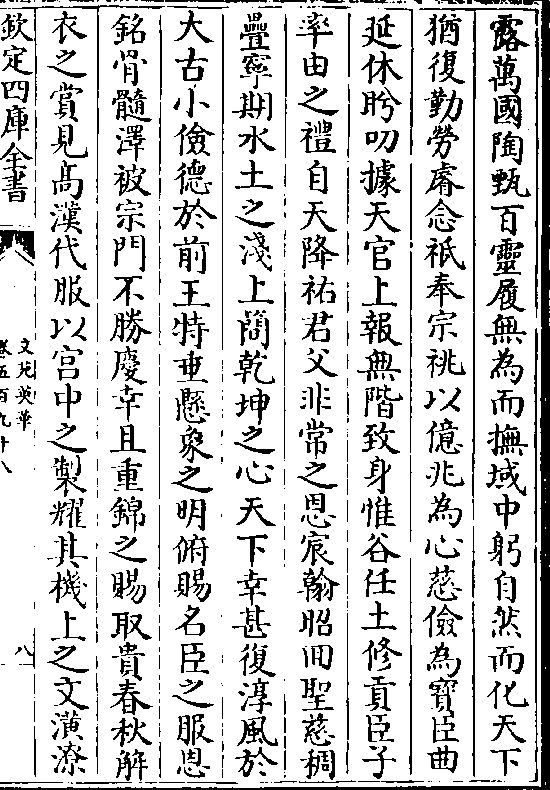 露萬國陶甄百靈履無為而撫域中躬自然而化天下
猶復勤勞睿念祗奉宗祧以億兆為心慈儉為寶臣曲
延休盻叨據天官上報無階致身惟谷任土修貢臣子
率由之禮自天降祐君父非常之恩宸翰昭回聖慈稠
疊寧期水土之淺上簡乾坤之心天下幸甚復淳風於
大古小儉德於前王特垂懸象之明俯賜名臣之服恩
銘骨髓澤被宗門不勝慶幸且重錦之賜取貴春秋解
衣之賞見髙漢代服以宫中之製耀其機上之文潢潦
欽定四庫全書
文苑英華
卷五百九十八
八